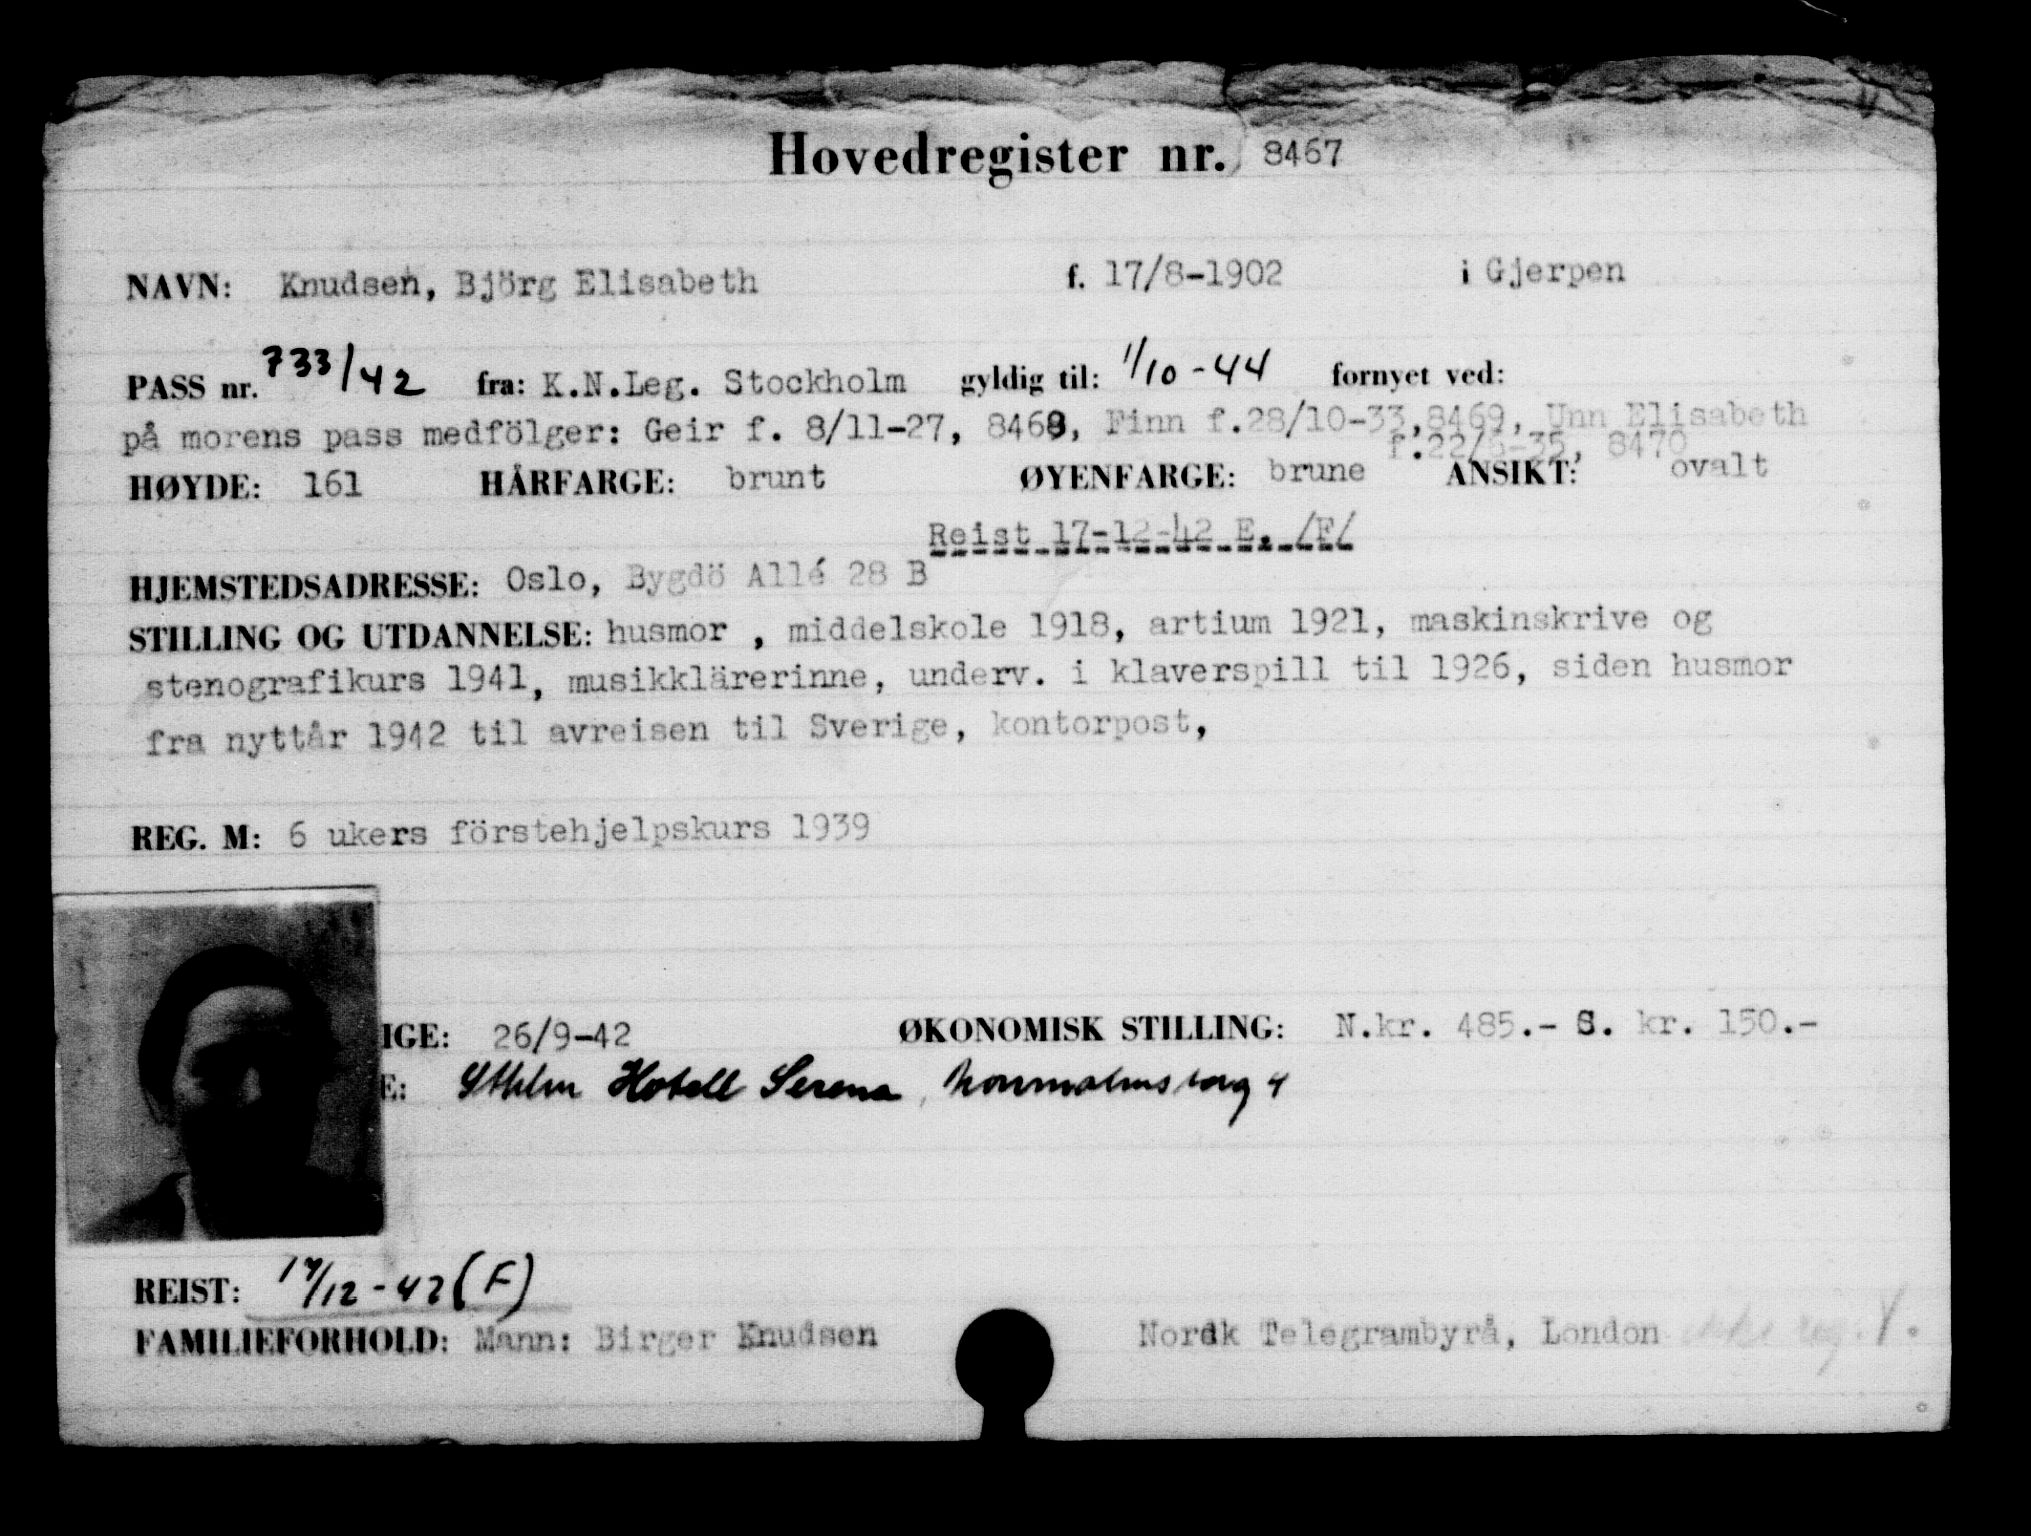 Hovedregister nr. 8467
NAVN: Knudsen, Björg Elisabeth f. 17/8-1902 i Gjerpen
PASS nr. 733/42 fra: K.N.Leg. Stockholm gyldig til: 1/10-44 fornyet ved:
på morens pass medfölger: Geir f. 8/11-27, 8468, Finn f.28/10-33,8469, Unn Elisabeth
f.22/ -35, 8470
HØYDE: 161 HÅRFARGE: brunt ØYENFARGE: brune ANSIKT: ovalt
Reist 17-12-42 E. /F/
HJEMSTEDSADRESSE: Oslo, Bygdö Allé 28 B
STILLING OG UTDANNELSE: husmor , middelskole 1918, artium 1921, maskinskrive og
stenografikurs 1941, musikklärerinne, underv. i klaverspill til 1926, siden husmor
fra nyttår 1942 til avreisen til Sverige, kontorpost,
REG. M: 6 ukers förstehjelpskurs 1939
IGE: 26/9-42 ØKONOMISK STILLING: N.kr. 485.- S. kr. 150.-
E: Sthlm Hotell Serena, Norrmalmstorg 4
REIST: 17/12-42 (F)
FAMILIEFORHOLD: Mann: Birger Knudsen Nordk Telegrambyrå, London